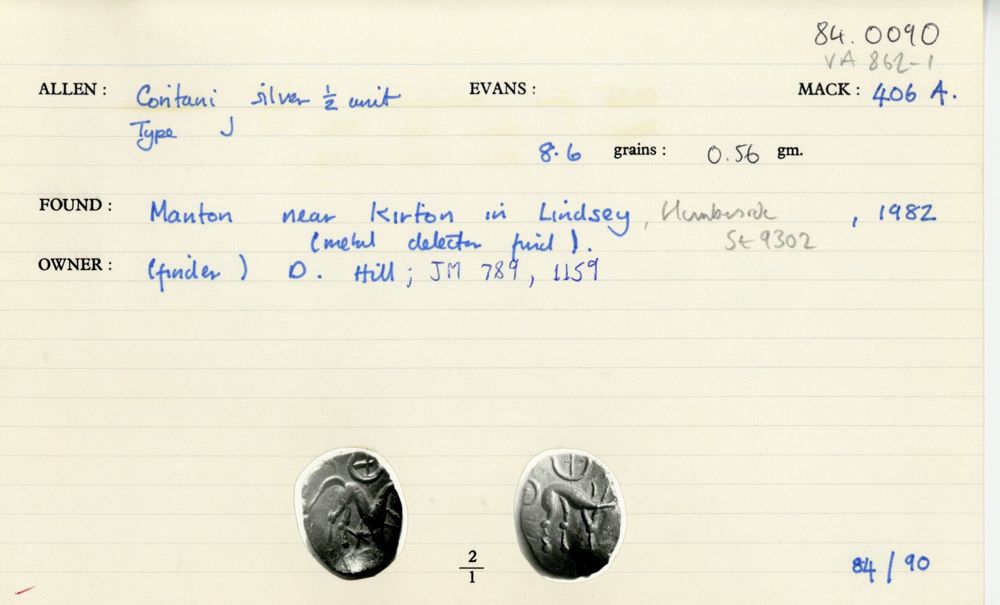 84.0090
VA 862-1
ALLEN : Coritani silver ½ unit EVANS : MACK : 406 A.
Type J
8.6 grains : 0.56 gm.
FOUND : Manton near Kirton in Lindsey, Humberside, 1982
(metal detector find). SE 9302
OWNER : (finder) D. Hill; JM 789, 1159
2
1
84/90